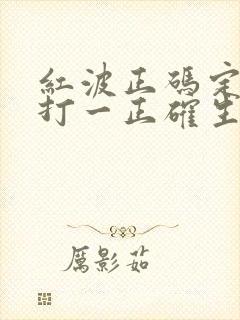 紅波正碼定
打一正確生
厲影茹